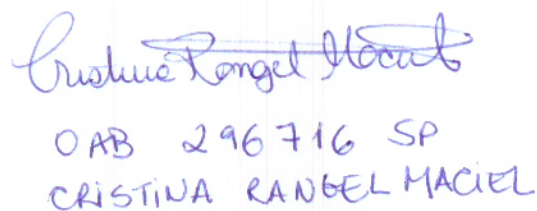 Cristina Rangel Maciel
OAB 296716 SP
CRISTINA RANGEL MACIEL